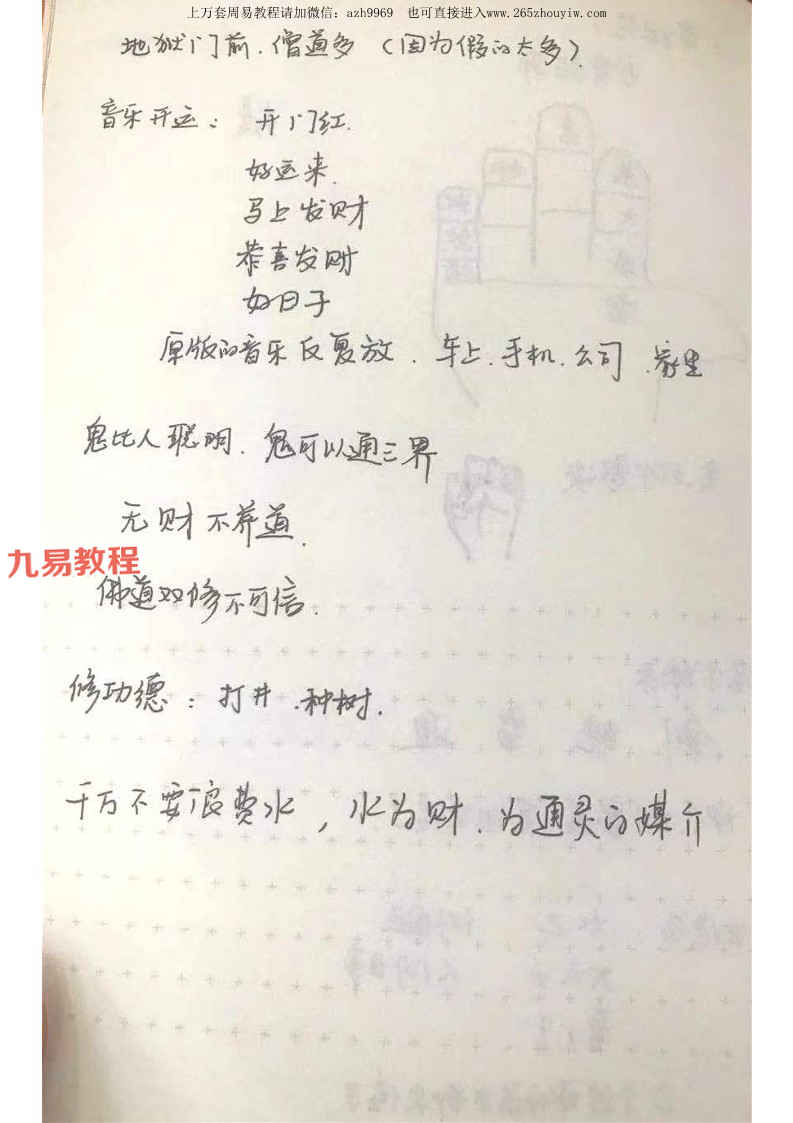 上万套周易教程请加微信：azh9969 也可直接进入www.265zhouyiw.com
地狱门前.僧道多（因为假的太多）.
音乐开运：开门红.
好运来.
马上发财
恭喜发财
好日子
原版的音乐反复放.车上.手机.公司.家里
鬼比人聪明.鬼可以通三界
无财不养道.
九易教程
佛道双修不可信.
修功德：打井.种树.
千万不要浪费水，水为财.为通灵的媒介